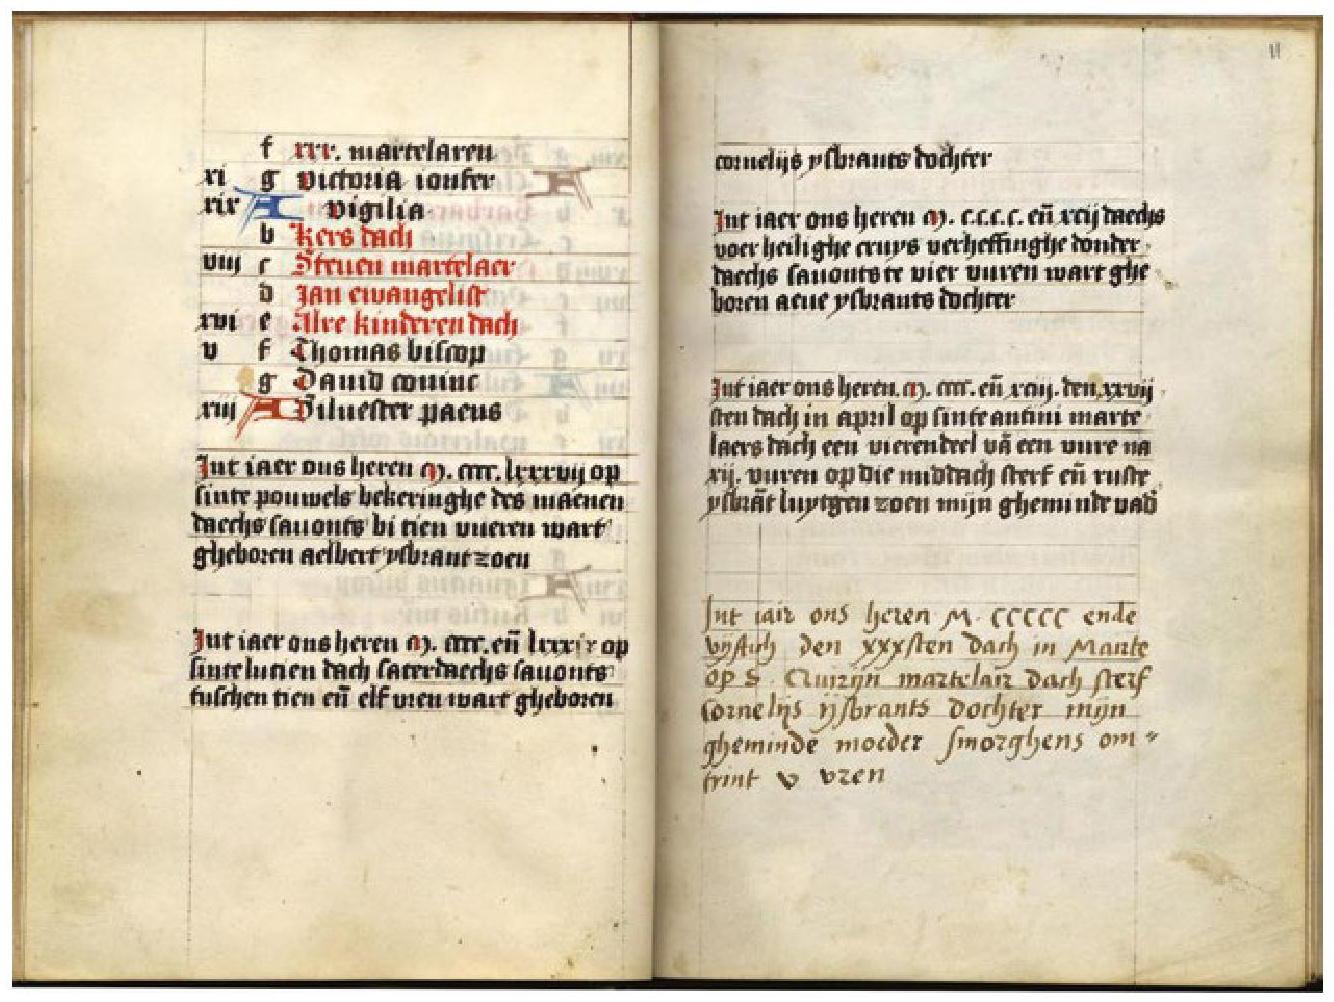 f xxx. martelaren
xi g victoria ioufer
xix A vigilia
b kers dach
viij c Steuen martelaer
d Jan ewangelist
xvi e Alre kinderen dach
v f Thomas biscop
g Dauid coninc
xiij A Siluester paeus
Int iaer ons heren M. cccc. lxxxvij op
sinte pouwels bekeringhe des maenen
daechs sauonts bi tien vueren wart
gheboren aelbert ysbrant zoen
Int iaer ons heren M. cccc. en̄ lxxxix op
sinte lucien dach saterdaechs sauonts
tuschen tien en̄ elf vren wart gheboren
vi
cornelijs ysbrants dochter
Int iaer ons heren M. c.c.c.c. en̄ xcij daechs
voer heilighe cruys verheffinghe donder
daechs sauonts te vier vuren wart ghe
boren aeue ysbrants dochter
Int iaer ons heren. M. cccc. en̄ xciij. den xxvij
sten dach in april op sinte antini marte
laers dach een vierendeel vā een vure na
xij. vuren op die middach sterf en̄ ruste
ysbrāt luytgen zoen mijn gheminde vad̄
Int iair ons heren M. CCCCC ende
vijftich den xxxsten dach in Marte
op S. Quirijn martelair dach sterf
Cornelijs ijsbrants dochter mijn
gheminde moeder smorghens om=
trint v vren